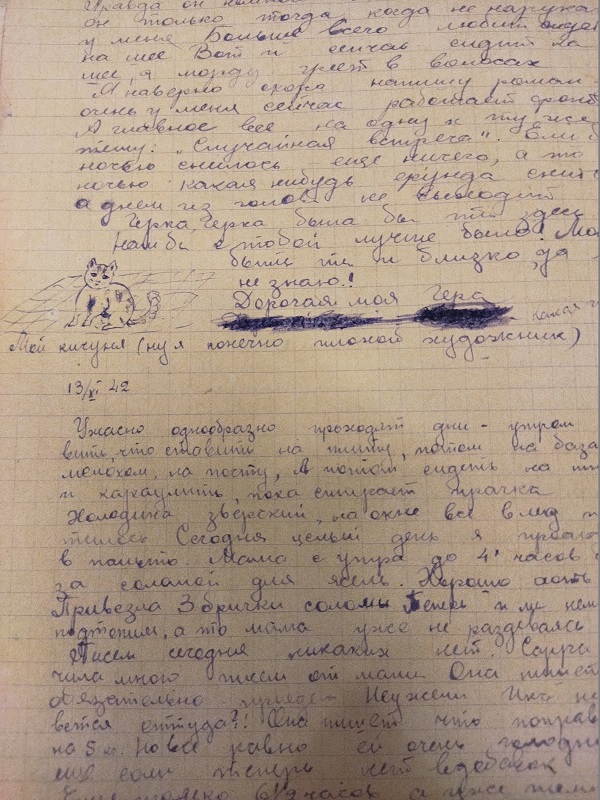 Правда он
он только тогда когда не
у меня Больше всего любит
на шее Вот и сейчас сидит на
шее, и морду греет в волосах
Я наверно скоро напишу роман
очень у меня сейчас работает
А главное все на одну и ту же
тему: „Случайная встреча". Если б
ночью снилось еще ничего, а то
ночью какая нибудь ерунда снит
а днем из головы не выходит
Герка, Герка была бы ты здесь
Нам бы с тобой лучше было!
были ты и близко да
не знаю!
Дорогая моя Гера
какая
Мой кисуня (ну я конечно плохой художник)
13/XI 42
Ужасно однообразно проходят дни - утром
вить, что ставить на плиту, потом на база
молоком, на почту, А потом сидеть на
и караулить, пока стирает прачка
Холодина зверский, на окне все в леду
тилось Сегодня целый день я
в пальто. Мама с утра до 4 часов
за соломой для ясель. Хорошо хоть
Привезла 3 брички соломы Теперь и мы нем
подтопим, а то мама уже не раздеваясь
Писем сегодня никаких нет.
чила мною писем от мамы Она пишет
обязательно приедет Неужели
вется оттуда?! Она пишет что поправ
на 5 кг. Но все равно ей очень голодно
еще если теперь нет вдобавок
только часов а уже